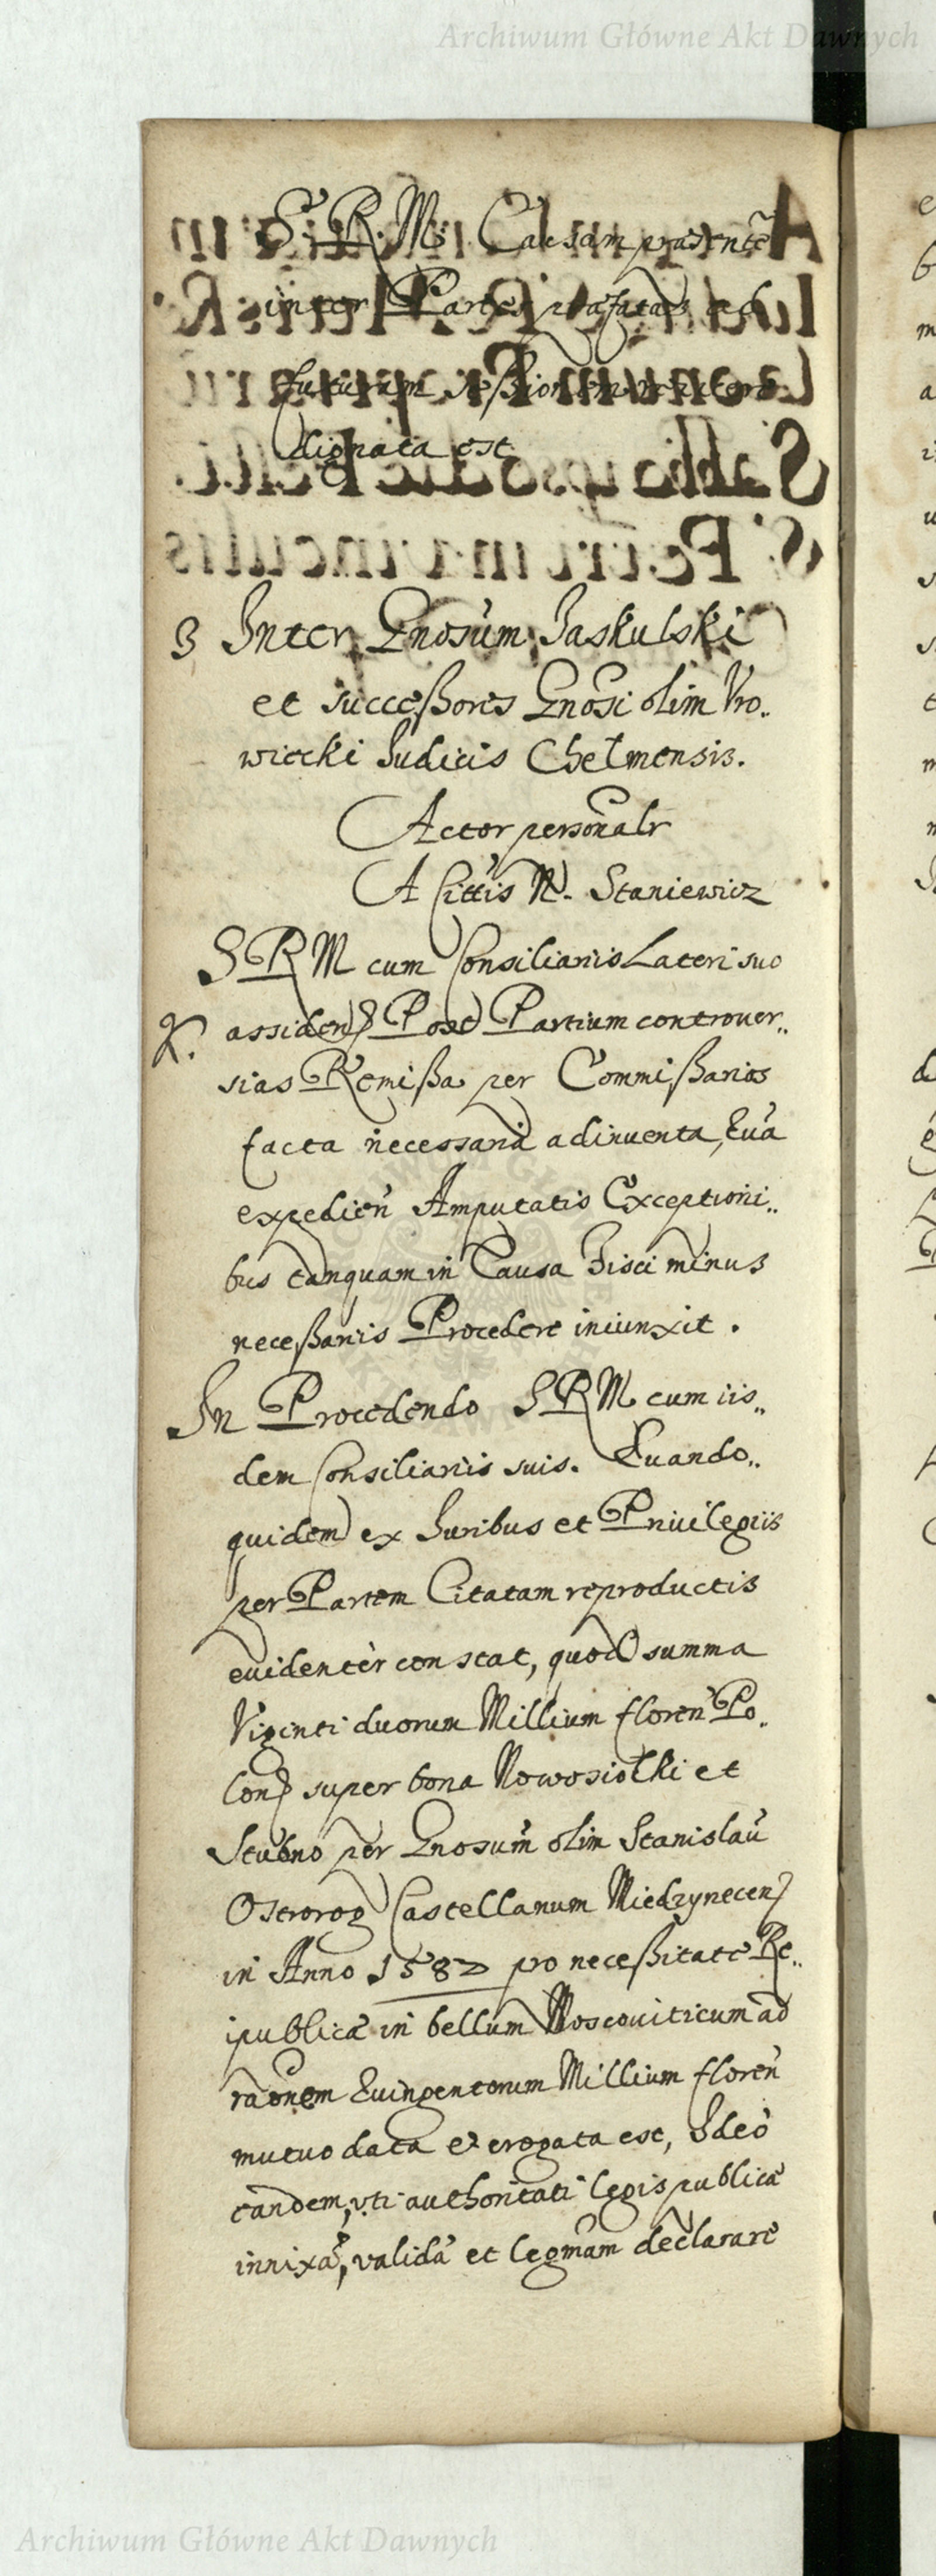 Archiwum Główne Akt Dawnych
S. R. M. Causam praesente
inter Partes praefatas ad
futuram sessionem
dignata est
3 Inter Gnosum Jaskulski
et successores Gnosi olim Vro..
wiecki Judicis Chelmensis.
Actor personalr
A Cittis N. Staniewicz
S R M cum Consiliariis Lateri suo
assiden Post Partium controver..
sias Remissa per Commissarios
facta necessaria adinuenta, Eua
expedien Amputatis Exceptioni..
bus tanquam in Causa Fisci minus
necessariis Procedere iniunxit.
In Procedendo S R M cum iis..
dem Consiliariis suis. Quando..
quidem ex Juribus et Priuilegiis
per Partem Citatam reproductis
euidenter constat, quod summa
Viginti duorum Millium floren Po..
lon super bona Nowosiolki et
Stubno per Gnosum olim Stanislau
Ostrorog Castellanum Miedzyrecen
in Anno 1582 pro necessitate Re..
ipublicae in bellum Moscouiticum ad
raonem Quingentorum Millium floren
mutuo data et erogata est, Ideo
eandem, vti authoritati legis publicae
innixa, valida et legmam declarare
Archiwum Główne Akt Dawnych